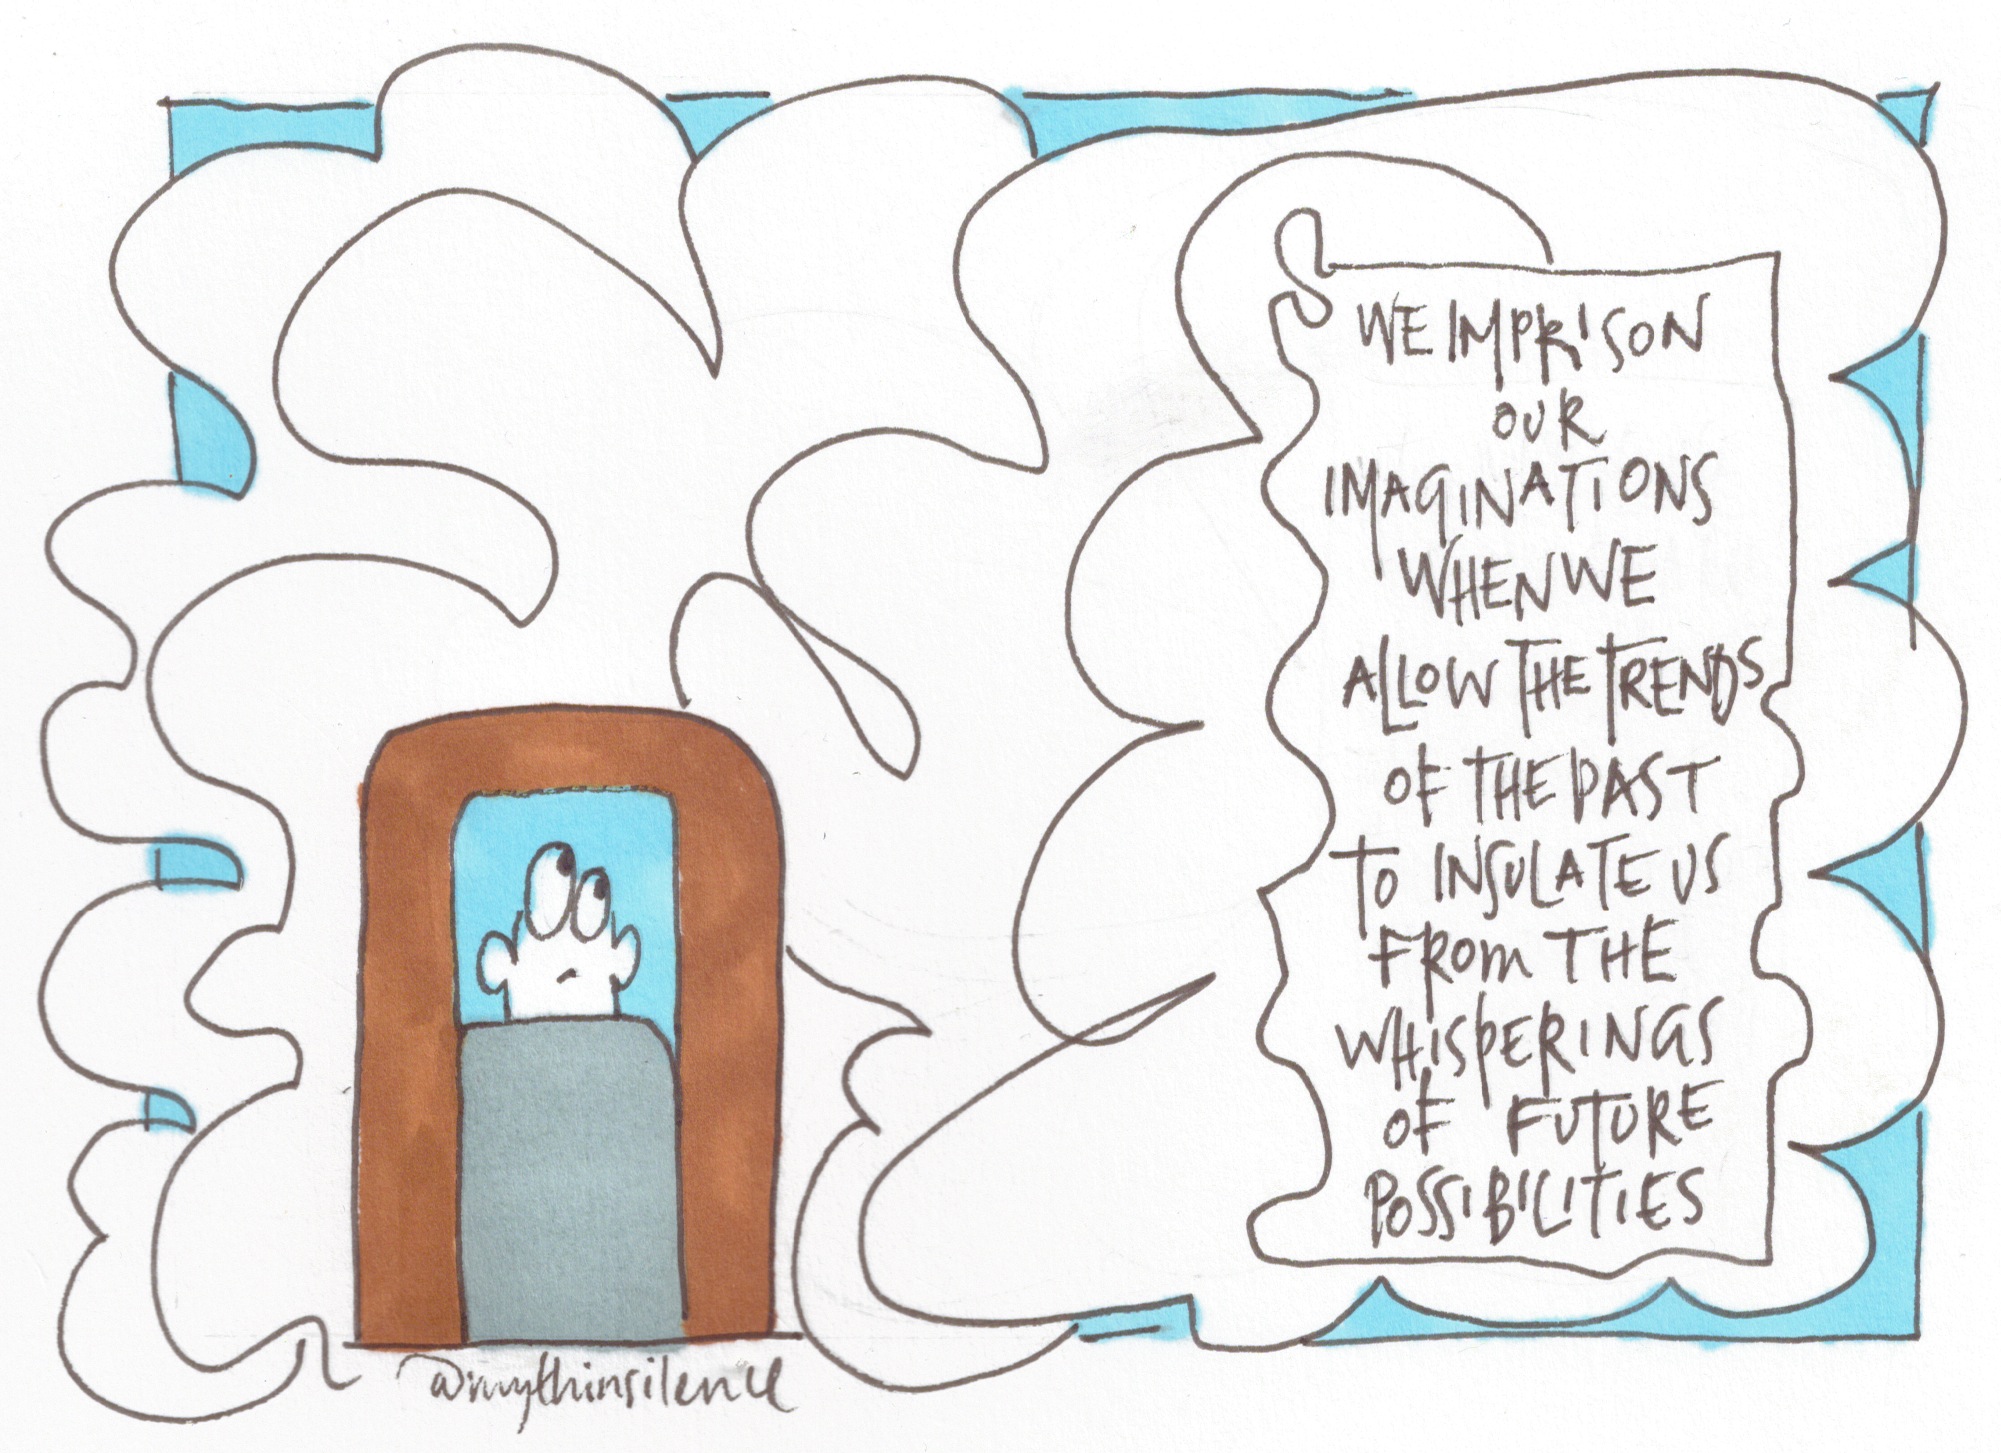 WE IMPRISON
OUR
IMAGINATIONS
WHEN WE
ALLOW THE TRENDS
OF THE PAST
TO INSULATE US
FROM THE
WHISPERINGS
OF FUTURE
POSSIBILITIES
@mythinsilence